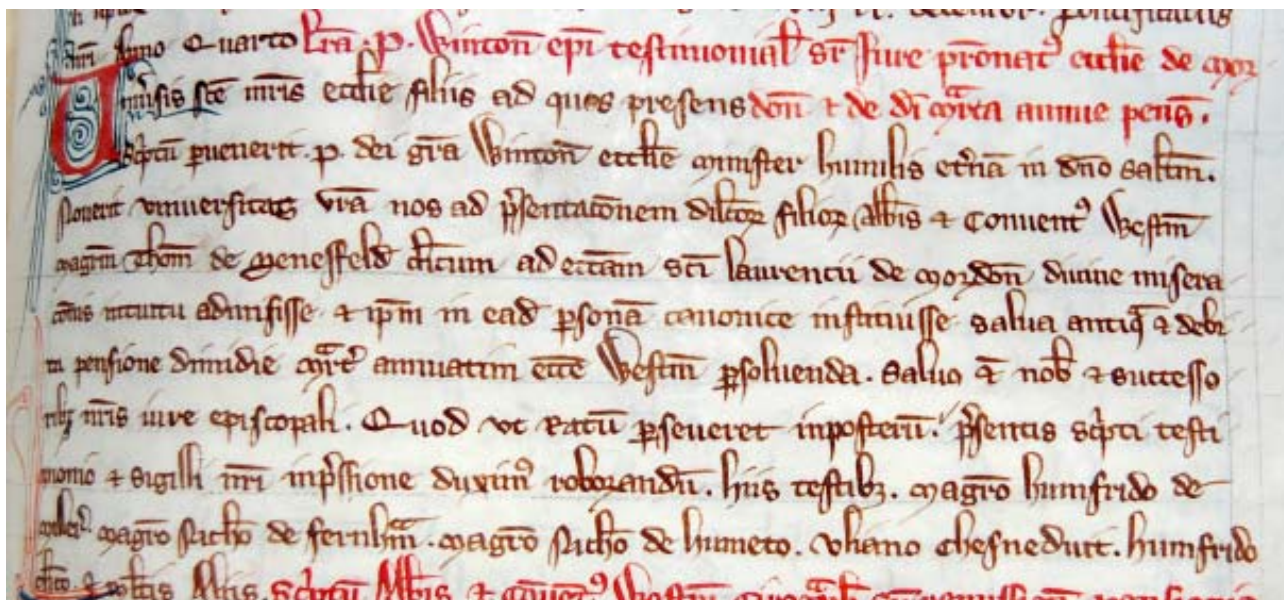 nri Anno Quarto lr̄a . P . Wintoñ ep̄i testimonial̄ sr̄ Iure pr̄onat⁹ eccl̄ie de mor
Uniu̓sis sc̄e mr̄is eccl̄ie filiis ad quos presens doñ ⁊ de di m̓rca annue pens̄ .
sc̓ptū puenerit . p . dei gr̄a Wintoñ eccl̄ie minister humilis et̓nā in dn̄o salt̄m .
Nouerit vniuersitas vr̄a nos ad p̓sentac̄onem dil̄corꝝ filiorꝝ Abb̄is ⁊ Conuent⁹ Westm̄
magr̄m Thom̄ de Menesfeld cl̄icum ad ecc̄am sc̄i laurencii de mordoñ diuine misera
c̄onis intuitu admisisse ⁊ ip̄m in ead̄ ꝑsonā canonice instituisse salua antiq̄ ⁊ debi
ta pensione dimidie m̓rc̓ annuatim ecc̄e Westm̄ ꝑsoluenda . saluo &#x304; nob̄ ⁊ successo
ribꝫ nr̄is iure episcopali . Quod vt Ratū ꝑseueret inposterū . p̓sentis sc̓pti testi
monio ⁊ sigilli nr̄i inp̓ssione duxim⁹ roborandū . hiis testibꝫ . magr̄o humfrido de
magr̄o Nich̄o de fernh̄m . magr̄o Nich̄o de humeto . vliano chesneduit . humfrido
cl̄ico . ⁊ mltis Aliis . sc̓ptū Abb̄is ⁊ Cōuent⁹ Westm̄